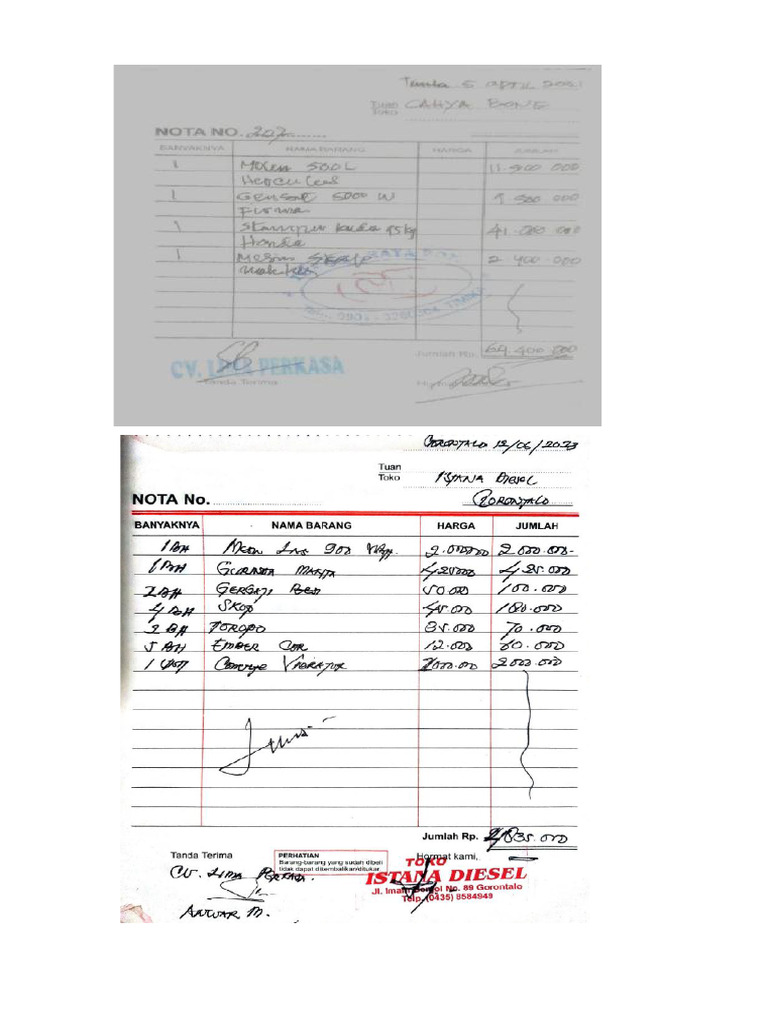 5 APRIL
Tuan CAHYA BONE
Toko
NOTA NO. 207
BANYAKNYA NAMA BARANG HARGA JUMLAH
1 Molen 500L 11.500 000
Hercules
1 Genset 5000 W 9 500 000
1 Stamper kuda 95 kg 41.000 000
Honda
1 Mesin 2 400.000
Jumlah Rp. 64.400 000
CV. PERKASA
Tanda Terima
GORONTALO 12/06/2023
Tuan
Toko ISTANA DIESEL
NOTA No. GORONTALO
BANYAKNYA NAMA BARANG HARGA JUMLAH
1 BH 900 2.000000 2.000.000-
1 BH GURINDA MAKITA 425000 425.000
2 BH GERGAJI 50.000 100.000
4 BH SKOP 45.000 180.000
2 BH 35.000 70.000
5 BH EMBER COR 12.000 60.000
1 2000.000 2000.000
Jumlah Rp. 4.835.000
Tanda Terima
PERHATIAN
Barang-barang yang sudah dibeli
tidak dapat dikembalikan/ditukar
Hormat kami,
TOKO
ISTANA DIESEL
Jl. Imam Bonjol No. 89 Gorontalo
Telp. (0435) 8584949
CV. LIMA PERKASA.
ANWAR M.